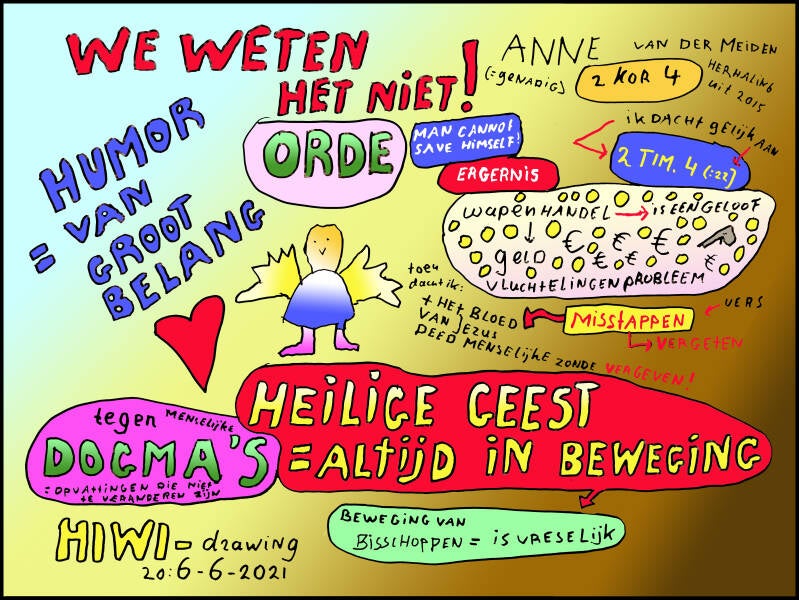 WE WETEN
HET NIET!
ANNE VAN DER MEIDEN
(=GENADIG)
2 KOR 4
HERHALING
UIT 2015
HUMOR
= VAN
GROOT
BELANG
ORDE
MAN CANNOT
SAVE HIMSELF!
ERGERNIS
IK DACHT GELIJK AAN
2 TIM. 4 (:22)
WAPENHANDEL → IS EEN GELOOF
GELD € € € € €
VLUCHTELINGEN PROBLEEM
toen
dacht ik:
+ HET BLOED
VAN JEZUS
DEED MENSELIJKE ZONDE VERGEVEN!
MISSTAPPEN
VERS
VERGETEN
HEILIGE GEEST
= ALTIJD IN BEWEGING
tegen MENSELIJKE
DOGMA'S
= OPVATTINGEN DIE NIET
TE VERANDEREN ZIJN
BEWEGING VAN
BISSCHOPPEN = IS VRESELIJK
HIWI - drawing
20:6-6-2021